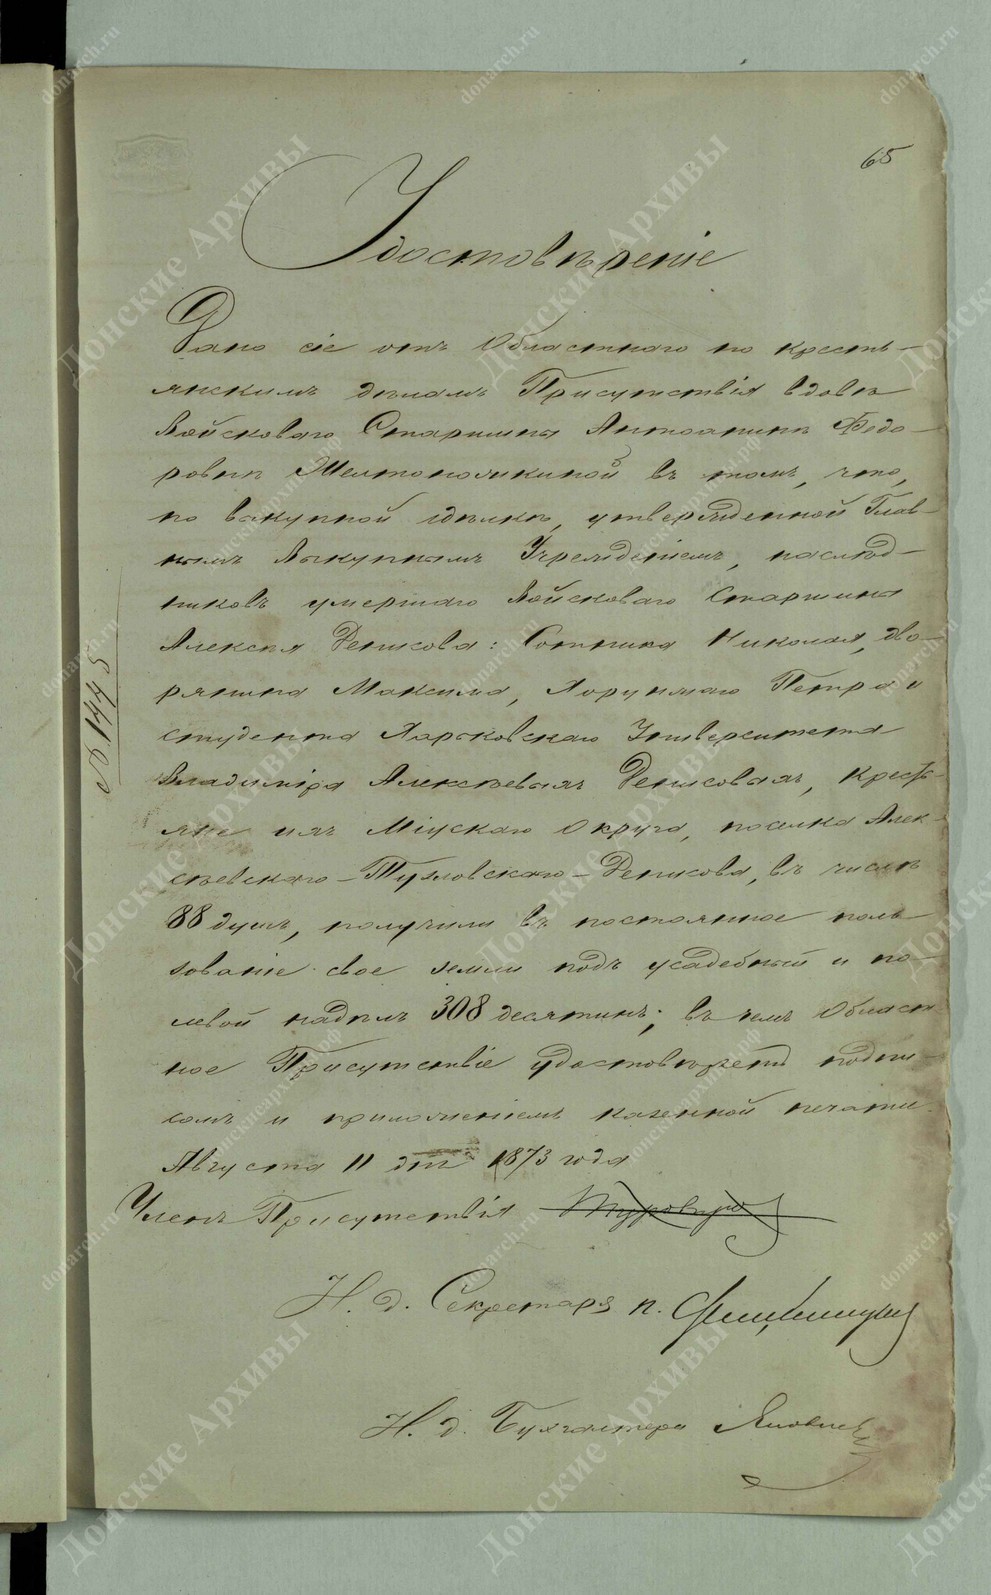 65
Удостовѣреніе
Дано сіе отъ Областнаго по кресть-
янскимъ дѣламъ Присутствія вдовѣ
Войсковаго Старшины Антоанинѣ Федо-
ровнѣ Желтоножкиной въ томъ, что,
по выкупной сдѣлкѣ, утвержденной Глав-
нымъ Выкупнымъ Учрежденіемъ, наслѣд-
никовъ умершаго Войсковаго Старшины
Алексѣя Денисова: Сотника Николая, дво-
рянина Максима, Хорунжаго Петра и
студента Харьковскаго Университета
Владиміра Алексѣевыхъ Денисовыхъ, кресть-
яне ихъ Міускаго Округа, поселка Алек-
сѣевскаго-Тузловскаго-Денисова, въ числѣ
88 душъ, получили въ постоянное поль-
зованіе свое земли подъ усадебный и по-
левой надѣлъ 308 десятинъ; въ чемъ Област-
ное Присутствіе удостовѣряетъ подпи-
сомъ и приложеніемъ казенной печати.
Августа 11 дня 1873 года
Членъ Присутствія
И. д. Секретаря п.
И. д. Бухгалтера Яковлев
№ 1445
Донские Архивы
donarch.ru
донскиеархивы.рф